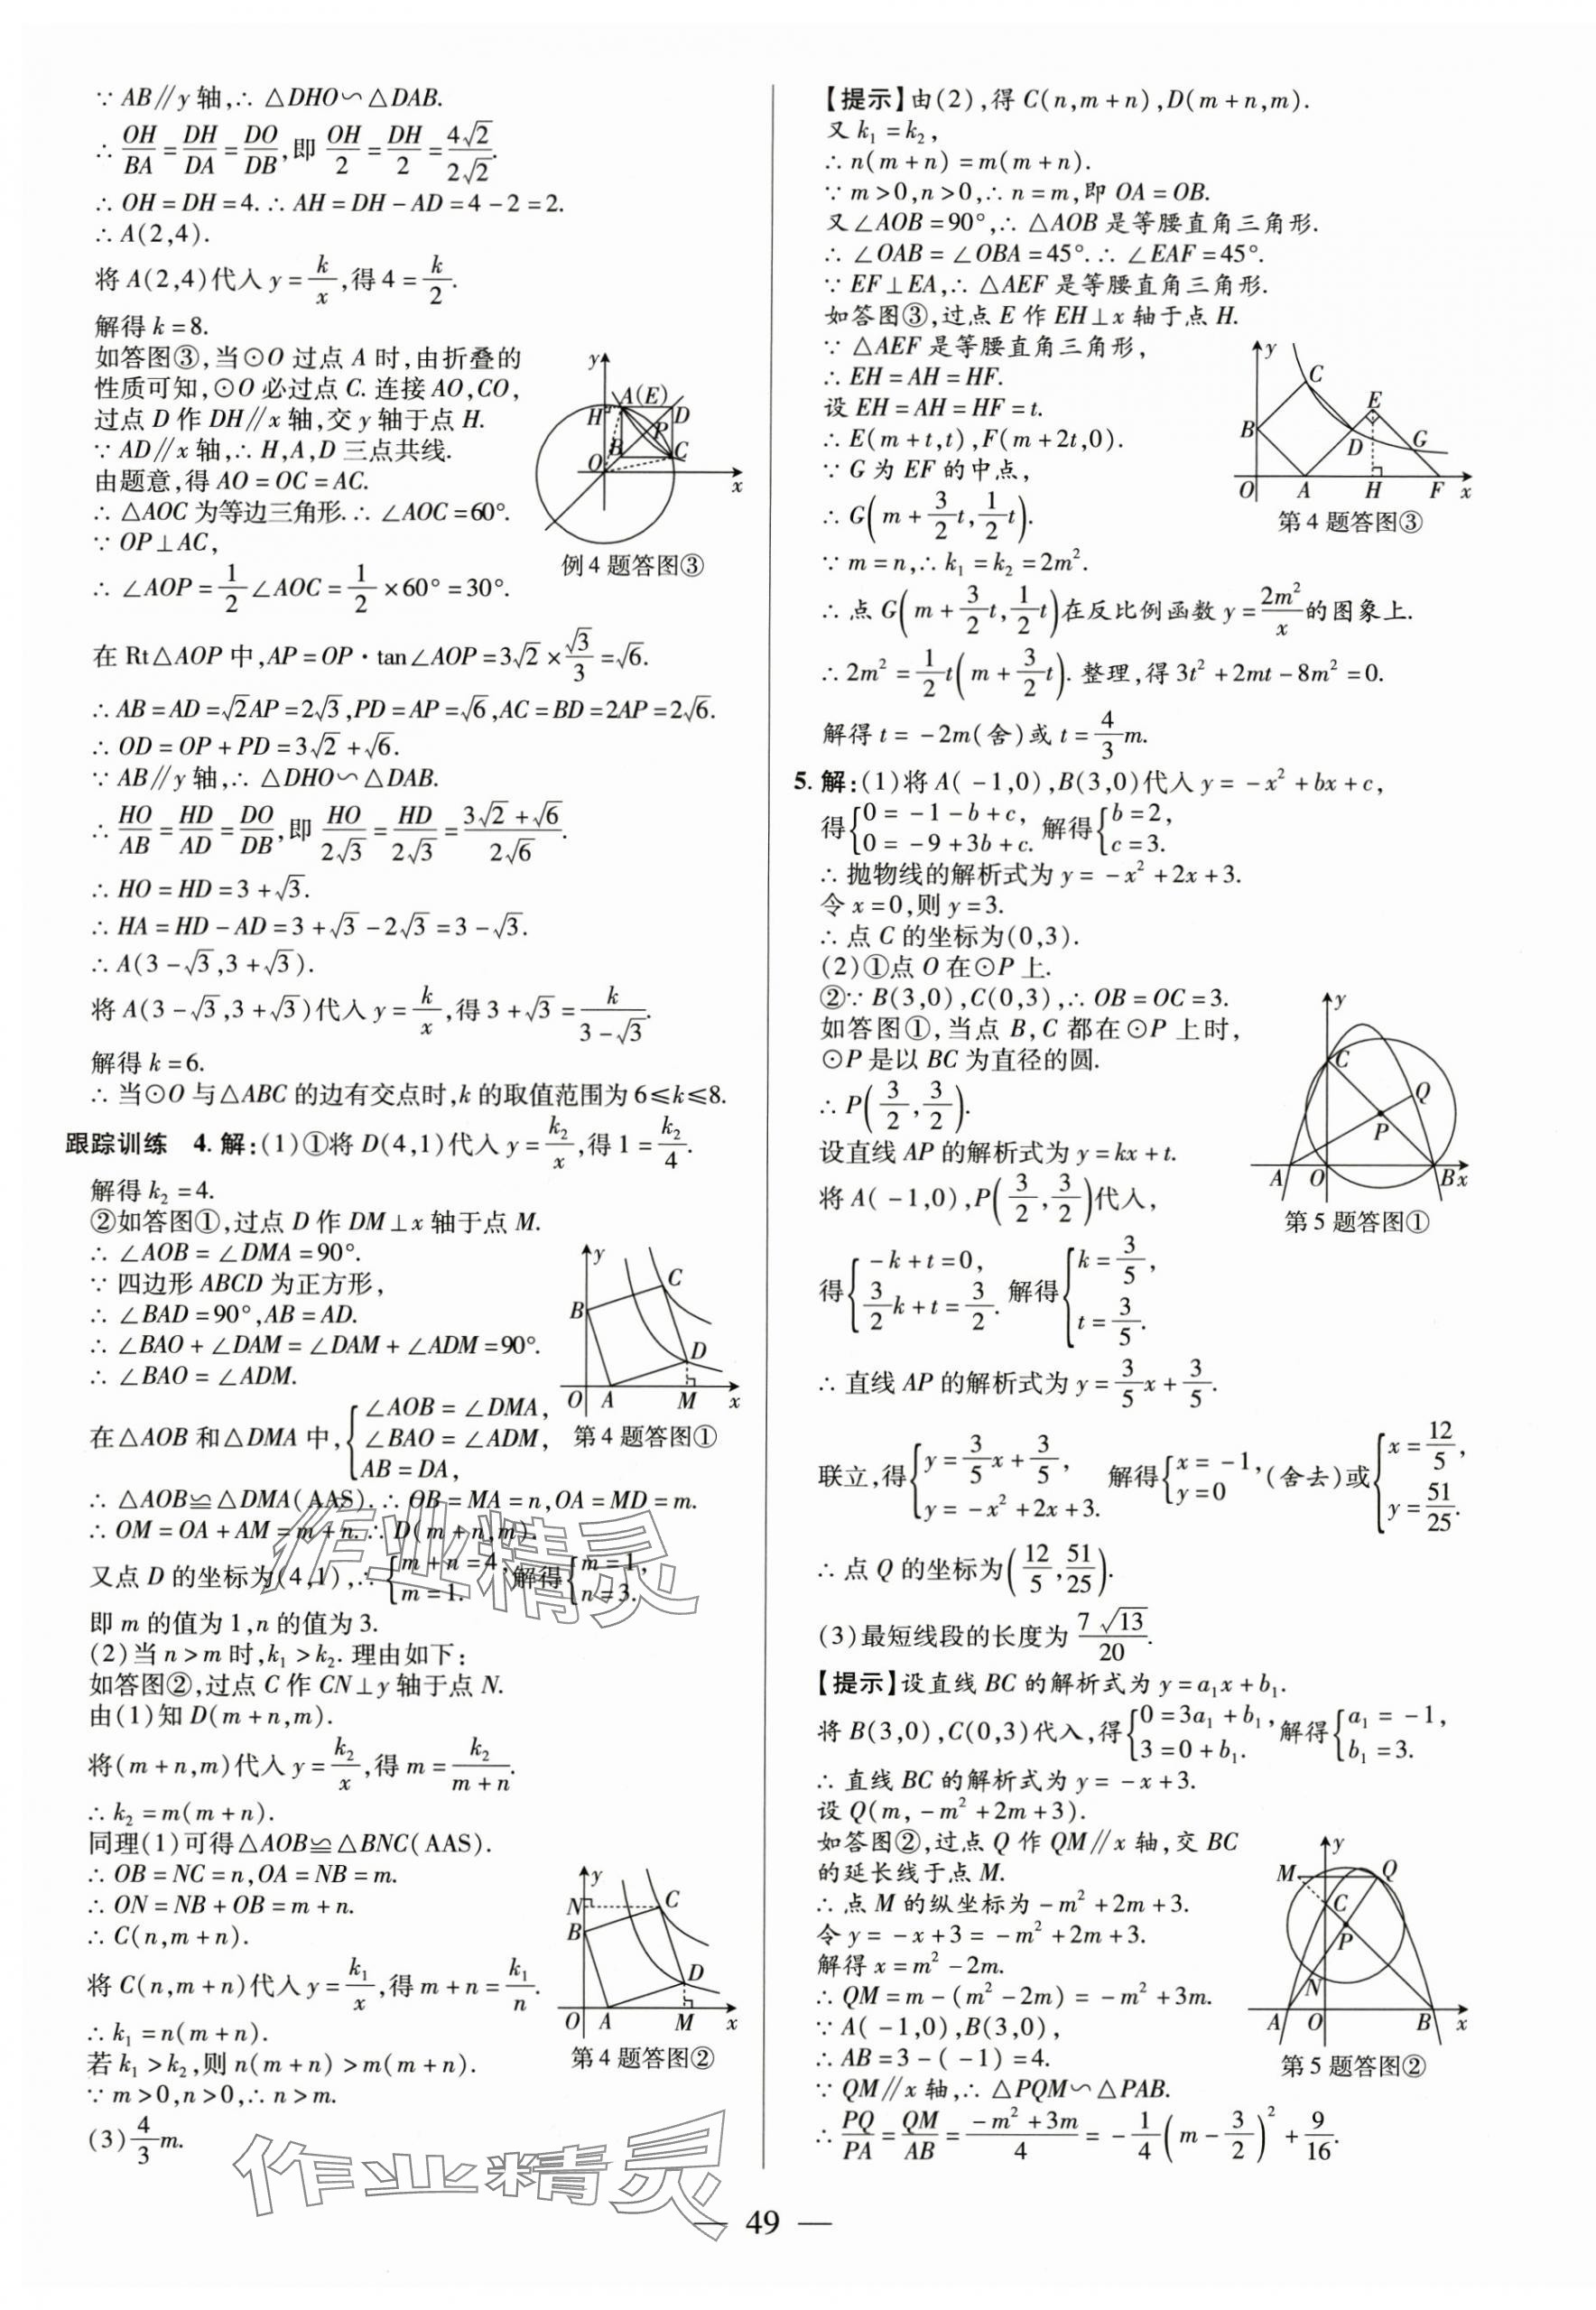 ∵ AB∥y 轴,∴ △DHO∽△DAB.
∴ OH/BA = DH/DA = DO/DB,即 OH/2 = DH/2 = 4√2/2√2.
∴ OH = DH = 4. ∴ AH = DH - AD = 4 - 2 = 2.
∴ A(2,4).
将 A(2,4)代入 y = k/x,得 4 = k/2.
解得 k = 8.
如答图③,当⊙O 过点 A 时,由折叠的
性质可知,⊙O 必过点 C. 连接 AO,CO,
过点 D 作 DH∥x 轴,交 y 轴于点 H.
∵ AD∥x 轴,∴ H,A,D 三点共线.
由题意,得 AO = OC = AC.
∴ △AOC 为等边三角形. ∴ ∠AOC = 60°.
∵ OP⊥AC,
∴ ∠AOP = 1/2 ∠AOC = 1/2 × 60° = 30°.
y
A(E)
H
D
P
B
C
O
x
例 4 题答图③
在 Rt△AOP 中,AP = OP · tan∠AOP = 3√2 × √3/3 = √6.
∴ AB = AD = √2AP = 2√3,PD = AP = √6,AC = BD = 2AP = 2√6.
∴ OD = OP + PD = 3√2 + √6.
∵ AB∥y 轴,∴ △DHO∽△DAB.
∴ HO/AB = HD/AD = DO/DB,即 HO/2√3 = HD/2√3 = (3√2 + √6)/2√6.
∴ HO = HD = 3 + √3.
∴ HA = HD - AD = 3 + √3 - 2√3 = 3 - √3.
∴ A(3 - √3,3 + √3).
将 A(3 - √3,3 + √3)代入 y = k/x,得 3 + √3 = k/(3 - √3).
解得 k = 6.
∴ 当⊙O 与△ABC 的边有交点时,k 的取值范围为 6≤k≤8.
跟踪训练 4. 解:(1)①将 D(4,1)代入 y = k₂/x,得 1 = k₂/4.
解得 k₂ = 4.
②如答图①,过点 D 作 DM⊥x 轴于点 M.
∴ ∠AOB = ∠DMA = 90°.
∵ 四边形 ABCD 为正方形,
∴ ∠BAD = 90°,AB = AD.
∴ ∠BAO + ∠DAM = ∠DAM + ∠ADM = 90°.
∴ ∠BAO = ∠ADM.
在△AOB 和△DMA 中,{∠AOB = ∠DMA, ∠BAO = ∠ADM, AB = DA,
y
C
B
D
O A M x
第 4 题答图①
∴ △AOB≌△DMA(AAS). ∴ OB = MA = n,OA = MD = m.
∴ OM = OA + AM = m + n. ∴ D(m + n,m).
又点 D 的坐标为(4,1),∴ {m + n = 4, m = 1. 解得{m = 1, n = 3.
即 m 的值为 1,n 的值为 3.
(2)当 n > m 时,k₁ > k₂. 理由如下:
如答图②,过点 C 作 CN⊥y 轴于点 N.
由(1)知 D(m + n,m).
将(m + n,m)代入 y = k₂/x,得 m = k₂/(m + n).
∴ k₂ = m(m + n).
同理(1)可得△AOB≌△BNC(AAS).
∴ OB = NC = n,OA = NB = m.
∴ ON = NB + OB = m + n.
∴ C(n,m + n).
将 C(n,m + n)代入 y = k₁/x,得 m + n = k₁/n.
∴ k₁ = n(m + n).
若 k₁ > k₂,则 n(m + n) > m(m + n).
∵ m > 0,n > 0,∴ n > m.
(3) 4/3 m.
y
N
C
B
D
O A M x
第 4 题答图②
【提示】由(2),得 C(n,m + n),D(m + n,m).
又 k₁ = k₂,
∴ n(m + n) = m(m + n).
∵ m > 0,n > 0,∴ n = m,即 OA = OB.
又∠AOB = 90°,∴ △AOB 是等腰直角三角形.
∴ ∠OAB = ∠OBA = 45°. ∴ ∠EAF = 45°.
∵ EF⊥EA,∴ △AEF 是等腰直角三角形.
如答图③,过点 E 作 EH⊥x 轴于点 H.
∵ △AEF 是等腰直角三角形,
∴ EH = AH = HF.
设 EH = AH = HF = t.
∴ E(m + t,t),F(m + 2t,0).
∵ G 为 EF 的中点,
∴ G(m + 3/2 t, 1/2 t).
∵ m = n,∴ k₁ = k₂ = 2m².
y
C
E
B
D
G
O A H F x
第 4 题答图③
∴ 点 G(m + 3/2 t, 1/2 t)在反比例函数 y = 2m²/x 的图象上.
∴ 2m² = 1/2 t(m + 3/2 t). 整理,得 3t² + 2mt - 8m² = 0.
解得 t = -2m(舍)或 t = 4/3 m.
5. 解:(1)将 A(-1,0),B(3,0)代入 y = -x² + bx + c,
得{0 = -1 - b + c, 0 = -9 + 3b + c. 解得{b = 2, c = 3.
∴ 抛物线的解析式为 y = -x² + 2x + 3.
令 x = 0,则 y = 3.
∴ 点 C 的坐标为(0,3).
(2)①点 O 在⊙P 上.
②∵ B(3,0),C(0,3),∴ OB = OC = 3.
如答图①,当点 B,C 都在⊙P 上时,
⊙P 是以 BC 为直径的圆.
∴ P(3/2, 3/2).
设直线 AP 的解析式为 y = kx + t.
将 A(-1,0),P(3/2, 3/2)代入,
y
C
Q
P
A O B x
第 5 题答图①
得{-k + t = 0, 3/2 k + t = 3/2. 解得{k = 3/5, t = 3/5.
∴ 直线 AP 的解析式为 y = 3/5 x + 3/5.
联立,得{y = 3/5 x + 3/5, y = -x² + 2x + 3. 解得{x = -1, y = 0 (舍去)或{x = 12/5, y = 51/25.
∴ 点 Q 的坐标为(12/5, 51/25).
(3)最短线段的长度为 7√13/20.
【提示】设直线 BC 的解析式为 y = a₁x + b₁.
将 B(3,0),C(0,3)代入,得{0 = 3a₁ + b₁, 3 = 0 + b₁. 解得{a₁ = -1, b₁ = 3.
∴ 直线 BC 的解析式为 y = -x + 3.
设 Q(m, -m² + 2m + 3).
如答图②,过点 Q 作 QM∥x 轴,交 BC
的延长线于点 M.
∴ 点 M 的纵坐标为 -m² + 2m + 3.
令 y = -x + 3 = -m² + 2m + 3.
解得 x = m² - 2m.
∴ QM = m - (m² - 2m) = -m² + 3m.
∵ A(-1,0),B(3,0),
∴ AB = 3 - (-1) = 4.
∵ QM∥x 轴,∴ △PQM∽△PAB.
y
M
Q
C
P
N
A O B x
第 5 题答图②
∴ PQ/PA = QM/AB = (-m² + 3m)/4 = -1/4 (m - 3/2)² + 9/16.
作业精灵
作业精灵
— 49 —